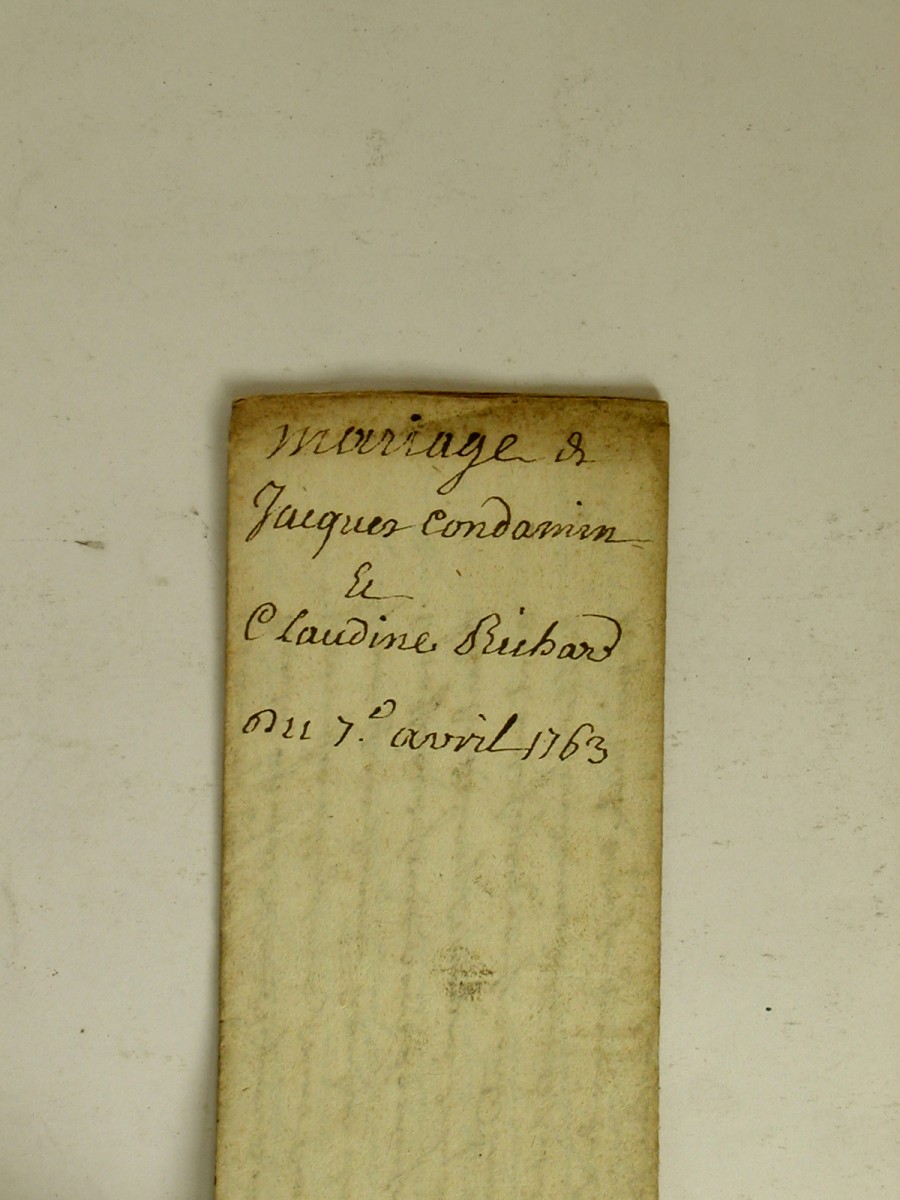 mariage de
Jacques Condamin
Et
Claudine Richard
Du 7.e avril 1763